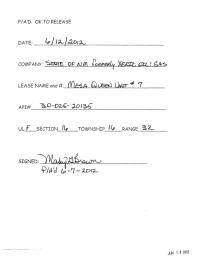 P/A'D. OK TO RELEASE
DATE: 6/12/2012
COMPANY: STATE OF NM formerly XERIC OIL & GAS
LEASE NAME and #: MESA QUEEN UNIT # 7
API# 30-025-20135
UL F SECTION 16 TOWNSHIP 16 RANGE 32
SIGNED:
P/A'd 6-7-2012
JUN 1 3 2012